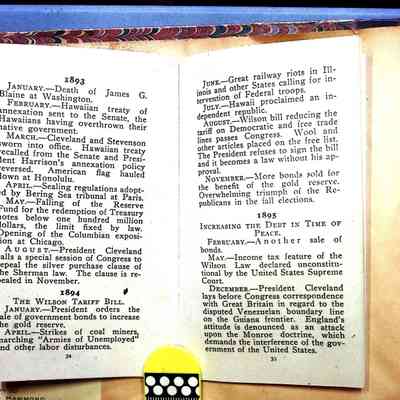 1893
JANUARY.—Death of James G.
Blaine at Washington.
FEBRUARY.—Hawaiian treaty of
annexation sent to the Senate, the
Hawaiians having overthrown their
native government.
MARCH.—Cleveland and Stevenson
sworn into office. Hawaiian treaty
recalled from the Senate and Presi-
dent Harrison's annexation policy
reversed. American flag hauled
down at Honolulu.
APRIL.—Sealing regulations adopt-
ed by Bering Sea tribunal at Paris.
MAY.—Falling of the Reserve
Fund for the redemption of Treasury
notes below one hundred million
dollars, the limit fixed by law.
Opening of the Columbian exposi-
ion at Chicago.
AUGUST.—President Cleveland
calls a special session of Congress to
repeal the silver purchase clause of
the Sherman law. The clause is re-
pealed in November.
1894
THE WILSON TARIFF BILL.
JANUARY.—President orders the
sale of government bonds to increase
the gold reserve.
APRIL.—Strikes of coal miners,
marching "Armies of Unemployed"
and other labor disturbances.
24
JUNE.—Great railway riots in Ill-
inois and other States calling for in-
tervention of Federal troops.
JULY.—Hawaii proclaimed an in-
dependent republic.
AUGUST.—Wilson bill reducing the
tariff on Democratic and free trade
lines passes Congress. Wool and
other articles placed on the free list.
The President refuses to sign the bill
and it becomes a law without his ap-
proval.
NOVEMBER.—More bonds sold for
the benefit of the gold reserve.
Overwhelming triumph of the Re-
publicans in the fall elections.
1895
INCREASING THE DEBT IN TIME OF
PEACE.
FEBRUARY.—Another sale of
bonds.
MAY.—Income tax feature of the
Wilson Law declared unconstitu-
tional by the United States Supreme
Court.
DECEMBER.—President Cleveland
lays before Congress correspondence
with Great Britain in regard to the
disputed Venezuelan boundary line
on the Guiana frontier. England's
attitude is denounced as an attack
upon the Monroe doctrine, which
demands the interference of the gov-
ernment of the United States.
25
HAMMOND